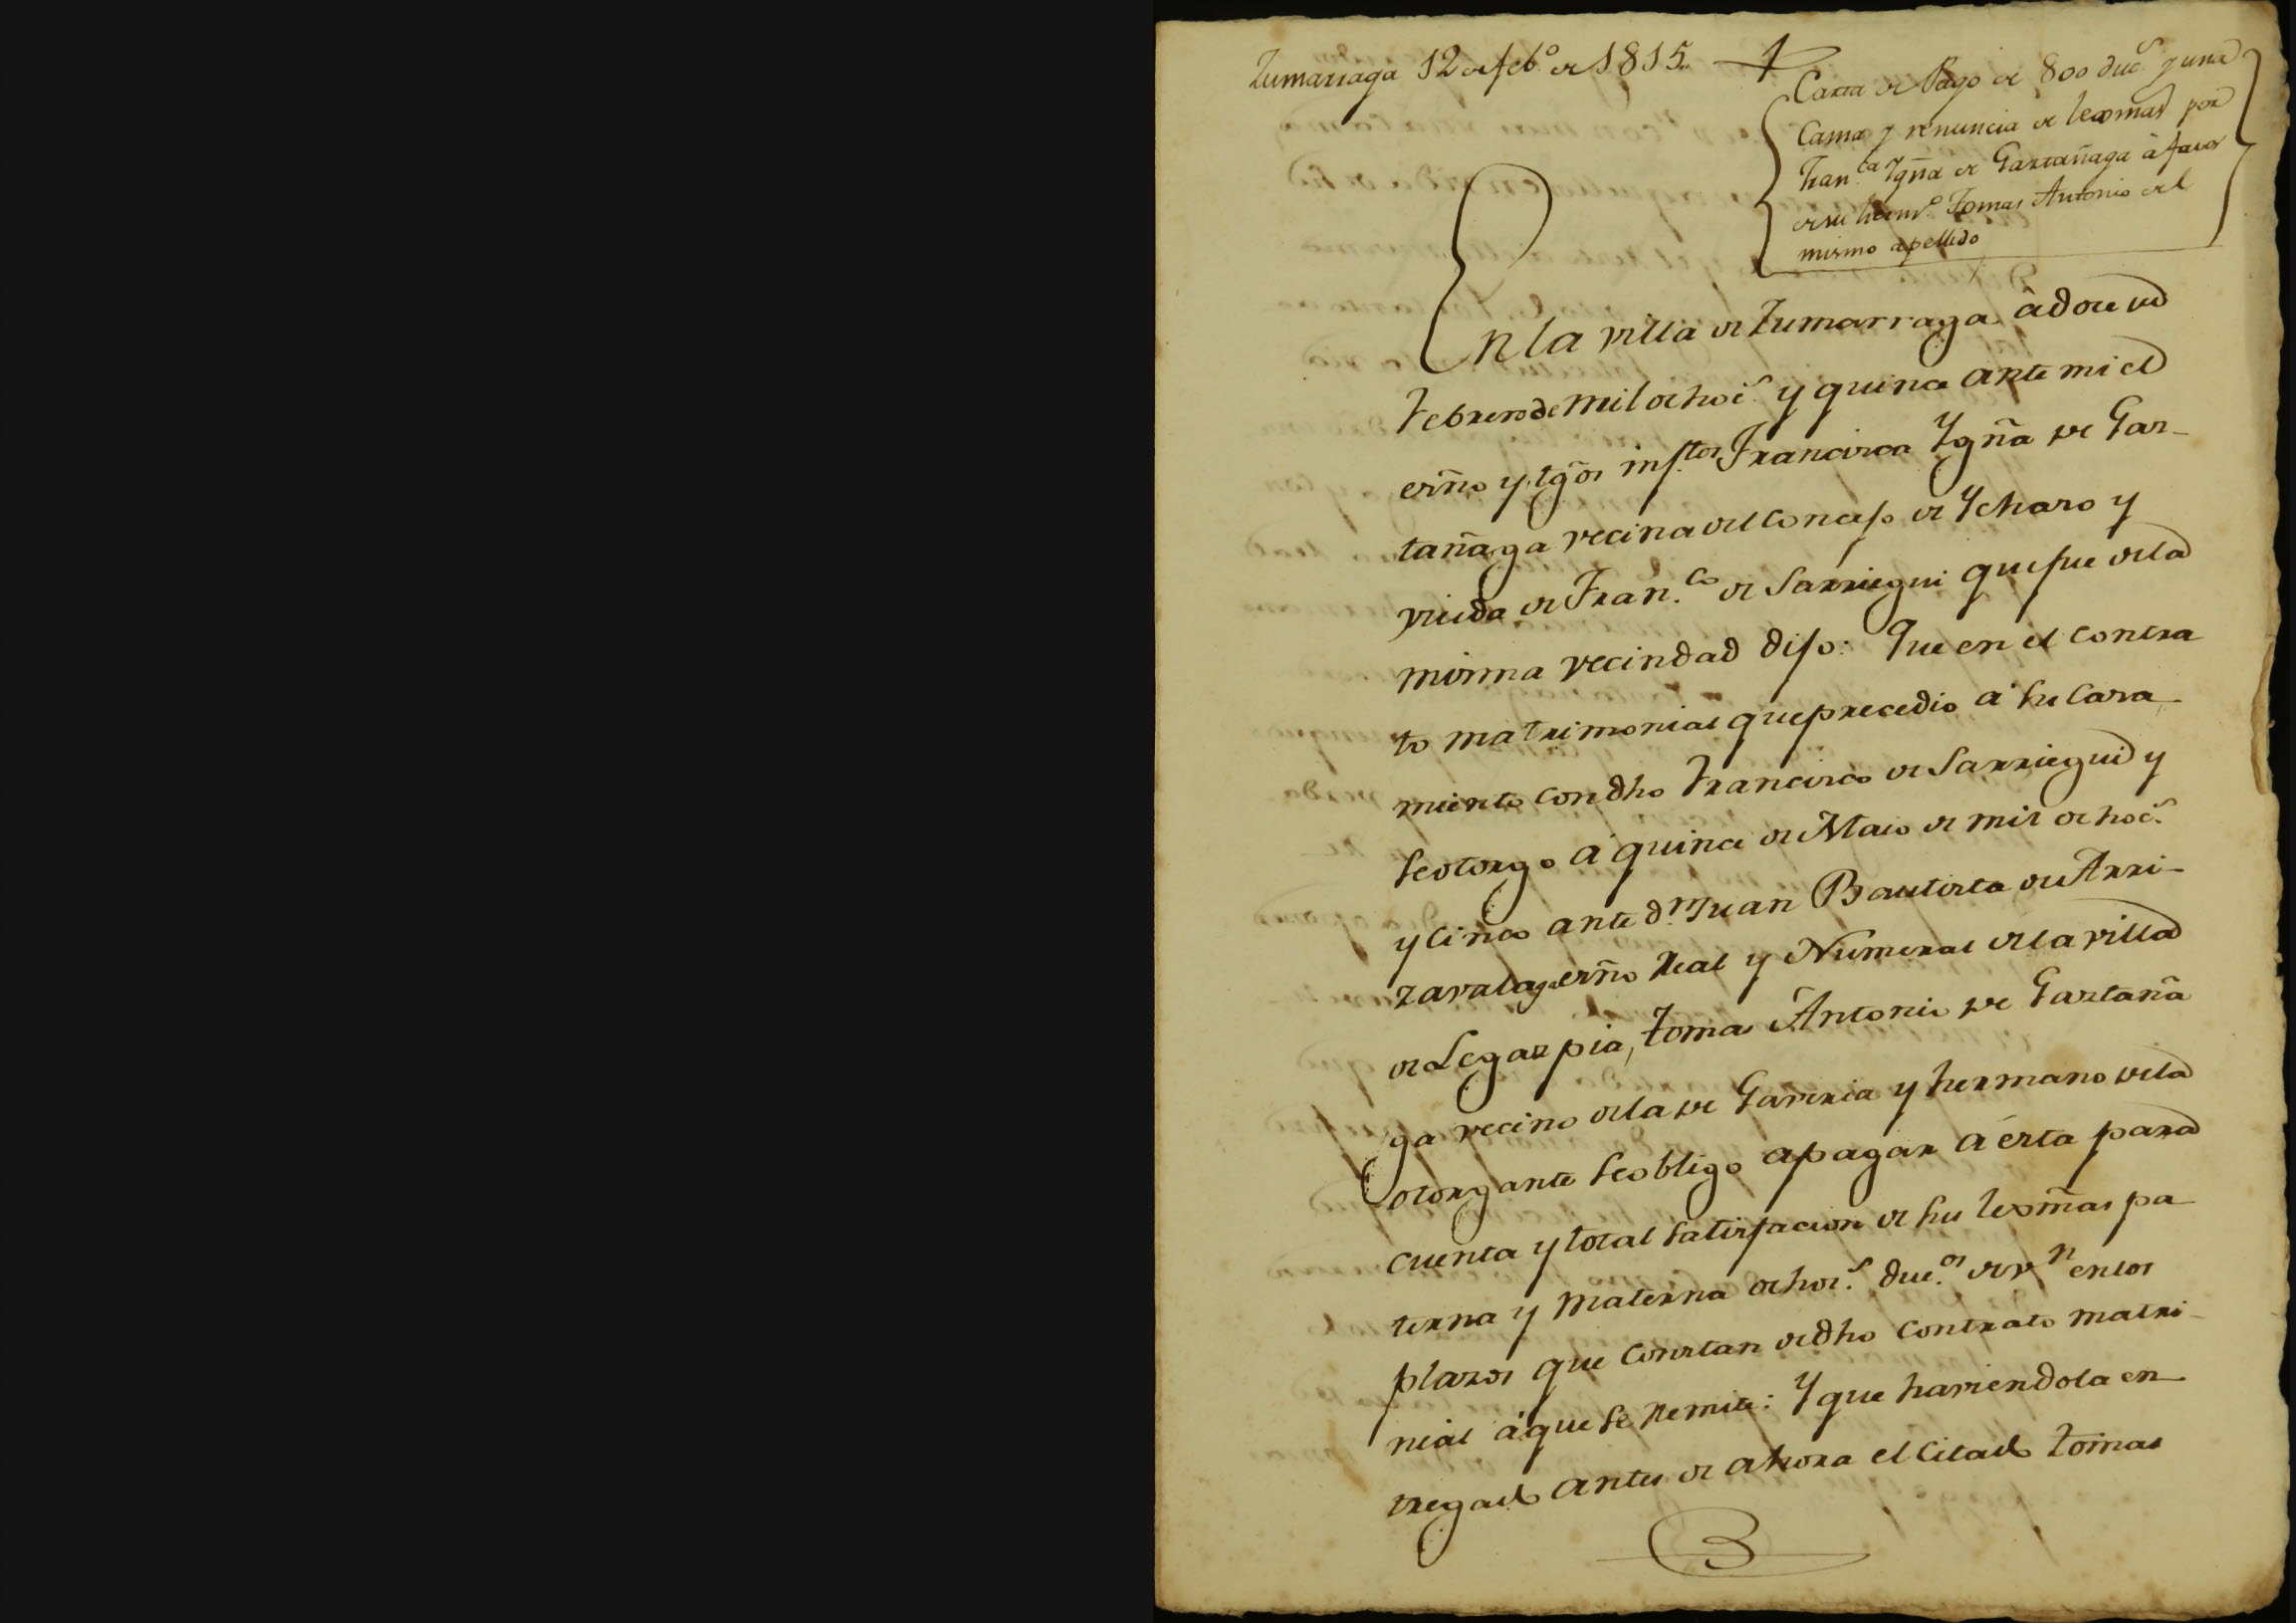 Zumarraga 12 de feb.º de 1815.
Carta de Pago de 800 duc.s y una
Cama y renuncia de lexmas por
Fran.ca Ygña de Gartañaga à favor
de su herm.º Tomas Antonio del
mismo apellido
En la villa de Zumarraga à doce de
Febrero de mil ochoc.s y quince ante mi el
esño y tgos insf.tos Francisca Ygña de Gar-
tañaga vecina del Concejo de Ycharo y
viuda de Fran.co de Sarriegui que fue de la
misma vecindad dijo: Que en el contra
to matrimonial que precedio á su Casa
miento con dho Francisco de Sarriegui y
se otorgo á quince de Maio de mil ochoc.s
y cinco ante d.n Juan Bautista de Arri-
zavalaga esño Real y Numeral de la villa
de Legazpia, Tomas Antonio de Gartaña
ga vecino de la de Gaviria y hermano de la
otorgante se obligo a pagar á esta para
cuenta y total satisfacion de sus lexmas pa
terna y materna ochoc.s duc.os de v.n en los
plazos que constan de dho contrato matri-
nial á que se remite: Y que haviendola en
tregado antes de ahora el citado Tomas